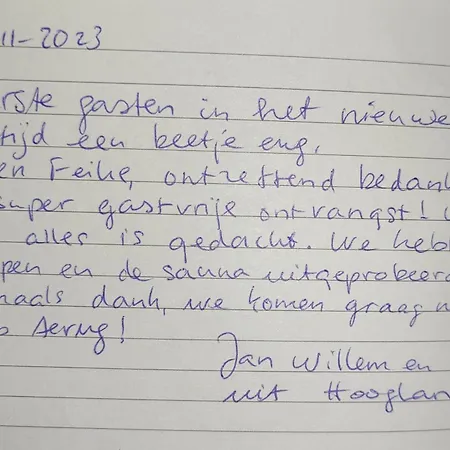 11-2023
rste gasten in het nieuwe
tijd een beetje eng,
en Feike, ontzettend bedank
super gastvrije ontvangst!
alles is gedacht. We hebb
pen en de sauna uitgeprobeerd
maals dank, we komen graag
terug!
Jan Willem en
uit Hooglan